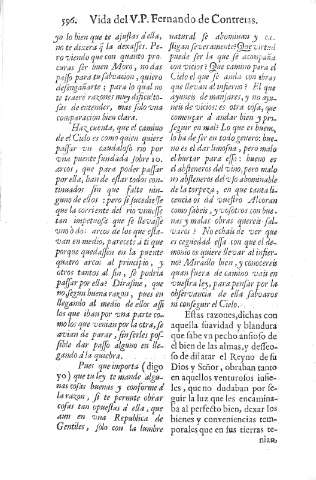 596. Vida del V. P. Fernando de Contreras.
yo lo bien que te ajustas à ella,
no te dixera q̃ la dexasses. Pe-
ro viendo que con quanto pro-
curas ser buen Moro, no das
passo para tu salvacion, quiero
desengañarte: para lo qual no
te traerè razones muy dificulto-
sas de entender, mas solo vna
comparacion bien clara.
Haz cuenta, que el camino
de el Cielo es como quien quiere
passar vn caudaloso rio por
vna puente fundada sobre 10.
arcos, que para poder passar
por ella, han de estar todos con-
tinuados sin que falte nin-
guno de ellos; pero si sucediesse
que la corriente del rio viniesse
tan impetuosa que se llevasse
vno ò dos arcos de los que esta-
van en medio, parecete à ti que
porque quedassen en la puente
quatro arcos al principio, y
otros tantos al fin, se podria
passar por ella? Dirasme, que
no segun buena razon, pues en
llegando al medio de ellos assi
los que iban por vna parte co-
mo los que venian por la otra, se
avian de parar, sin serles pos-
sible dar passo alguno en lle-
gando à la quiebra.
Pues que importa (digo
yo) que tu ley te mande algu-
nas cosas buenas y conforme à
la razon, si te permite obrar
cosas tan opuestas à ella, que
aun en vna Republica de
Gentiles, solo con la lumbre
natural se abominan y cas-
tigan severamente? Que virtud
puede ser la que se acompaña
con vicios? Que camino para el
Cielo el que se anda con obras
que llevan al infierno? El que
ayunes de manjares, y no ayu-
nes de vicios: es otra cosa, que
començar à andar bien y pro-
seguir en mal? Lo que es bueno,
lo ha de ser en todo genero: bue-
no es el dar limosna, pero malo
el hurtar para esso: bueno es
abstenerse del vino, pero malo
no abstenerse del vso abominable
de la torpeza, en que tanta li-
cencia os dà vuestro Alcoran
como sabeis, y vosotros con bue-
nas y malas obras quereis sal-
varos? No echais de ver que
es ceguedad essa con que el de-
monio os quiere llevar al infier-
no? Miradlo bien, y conocereis
quan fuera de camino vais en
vuestra ley, para pensar por la
observancia de ella salvaros
ni conseguir el Cielo.
Estas razones, dichas con
aquella suavidad y blandura
que sabe vn pecho ansioso de
el bien de las almas, y desseo-
so de dilatar el Reyno de su
Dios y Señor, obraban tanto
en aquellos venturosos infie-
les, que no dudaban por se-
guir la luz que les encamina-
ba al perfecto bien, dexar los
bienes y conveniencias tem-
porales que en sus tierras te-
nian,